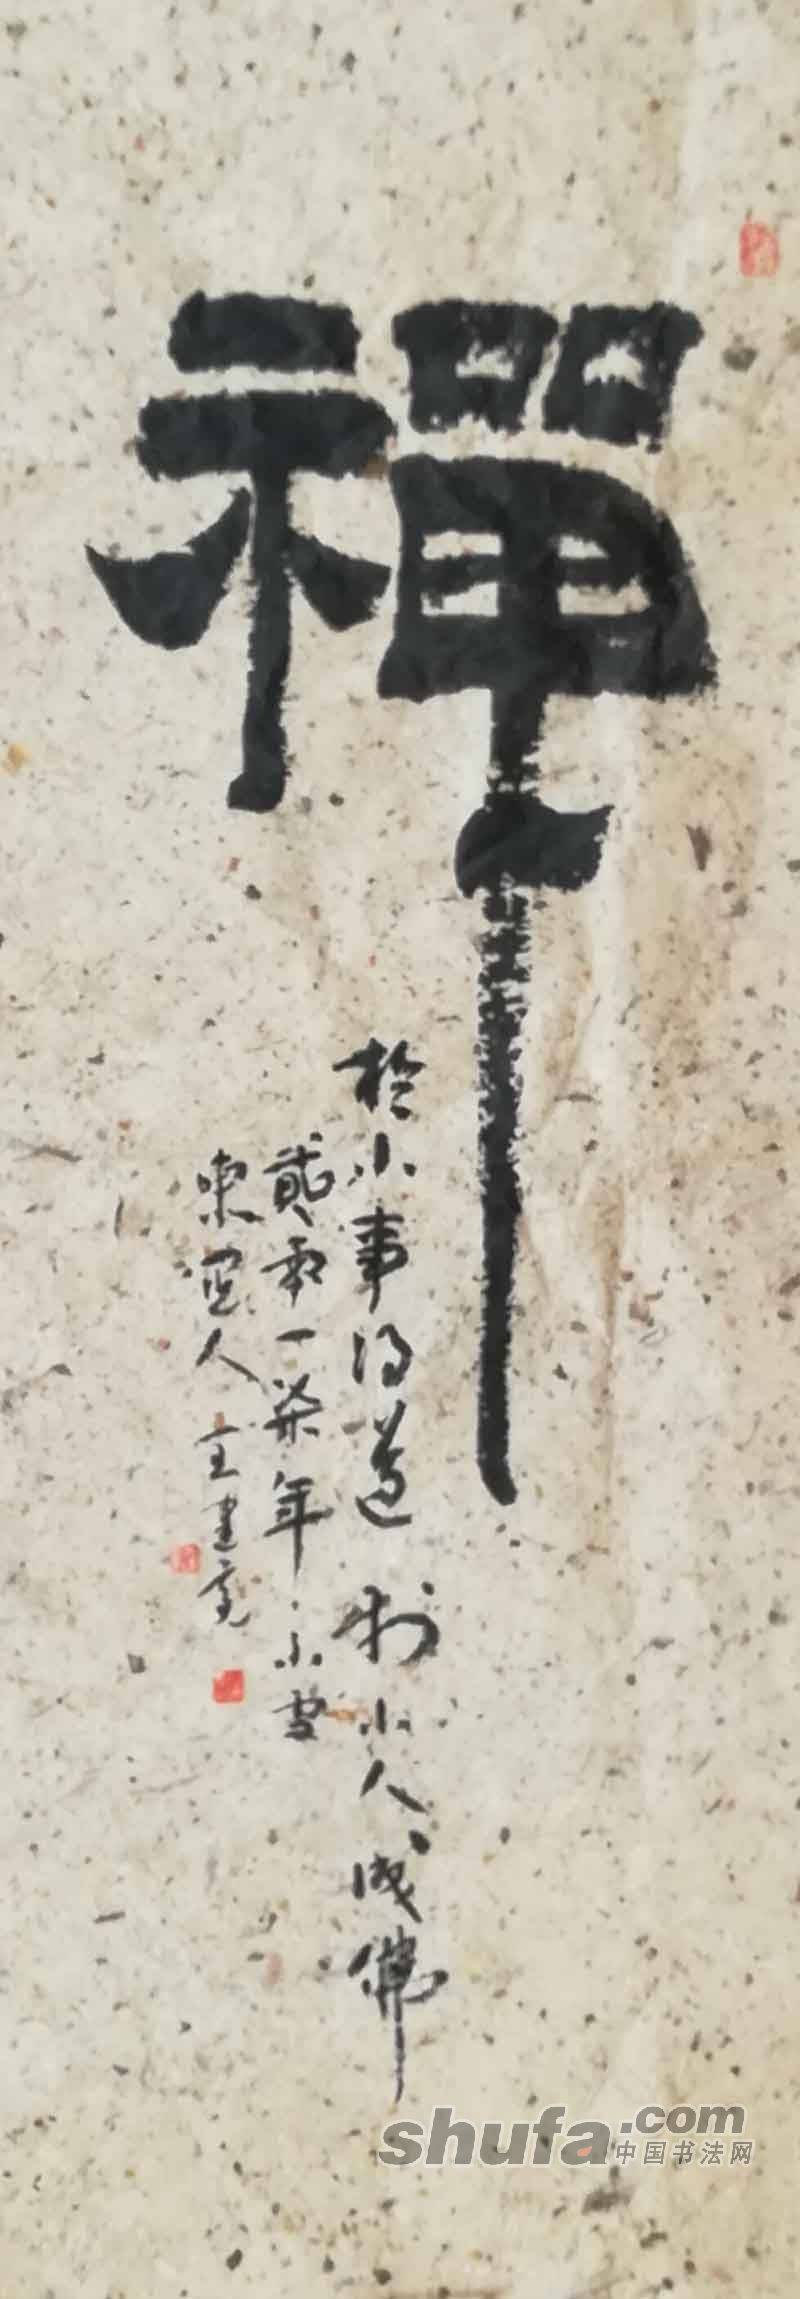 禪
於小事得道 於小人成佛
貳零一柒年小雪
東寧人 王建亮
shufa.com
中国书法网